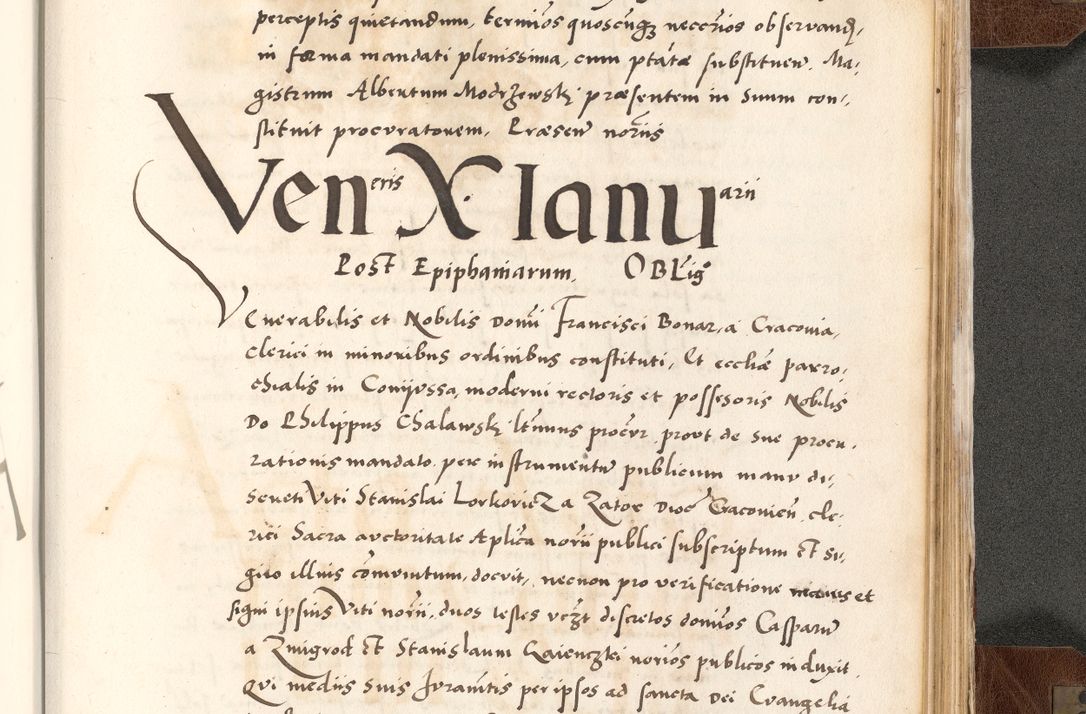 perceptis quietandum, terminos quoscunq neccrios observand,
in forma mandati plenissima, cum ptate substituen. Ma,
gistrum Albertum Modrzewski præsentem in suum con,
stituit procuratorem, Præsen norüs
Veneris X Ianuarii
Post Epiphaniarum, Oblig
Venerabilis et Nobilis Domi Francisci Bonar, a Cracovia,
Clerici in minoribus ordinibus constituti, Et eccliæ parro,
chialis in Conijossa, moderni rectoris et possesoris Nobilis
Do Philippus Chalawsky ltimus procur, prout de sue procu,
rationis mandato, per instrumentu publicum manu di,
screti Viti Stanislai Lorkovicz a Zator Dioc Cracovien, cle,
rici Sacra auctoritate Aplica norii publici subscriptum et si,
gno illius communitum, docuit, necnon pro verificatione manus et
signi ipsius Viti norii, duos testes vczt discretos domios Casparu
a Zmigrod et Stanislaum Gaienczki norios publicos induxit,
Qui mediis suis Iuramtis per ipsos ad sancta Dei Evangelia